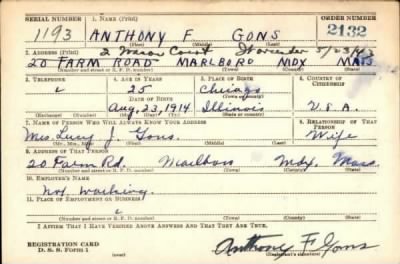 SERIAL NUMBER 1. NAME (Print) ORDER NUMBER
1193 ANTHONY F GONS 2132
(First) (Middle) (Last)
2 Court Worcester 5/23/42
2. ADDRESS (Print)
20 FARM ROAD MARLBORO MDX MASS
(Number and street or R. F. D. number) (Town) (County) (State)
3. TELEPHONE 4. AGE IN YEARS 5. PLACE OF BIRTH 6. COUNTRY OF CITIZENSHIP
25 Chicago
DATE OF BIRTH (Town or county)
Aug. 23, 1914 Illinois U.S.A.
(Exchange) (Number) (Mo.) (Day) (Yr.) (State or country)
7. NAME OF PERSON WHO WILL ALWAYS KNOW YOUR ADDRESS 8. RELATIONSHIP OF THAT PERSON
Mrs. Lucy J. Gons. Wife
(Mr., Mrs., Miss) (First) (Middle) (Last)
9. ADDRESS OF THAT PERSON
20 Farm Rd. Marlboro Mdx, Mass
(Number and street or R. F. D. number) (Town) (County) (State)
10. EMPLOYER'S NAME
Not working.
11. PLACE OF EMPLOYMENT OR BUSINESS
(Number and street or R. F. D. number) (Town) (County) (State)
I AFFIRM THAT I HAVE VERIFIED ABOVE ANSWERS AND THAT THEY ARE TRUE.
REGISTRATION CARD
D. S. S. Form 1
Anthony F Gons
(Registrant's signature)